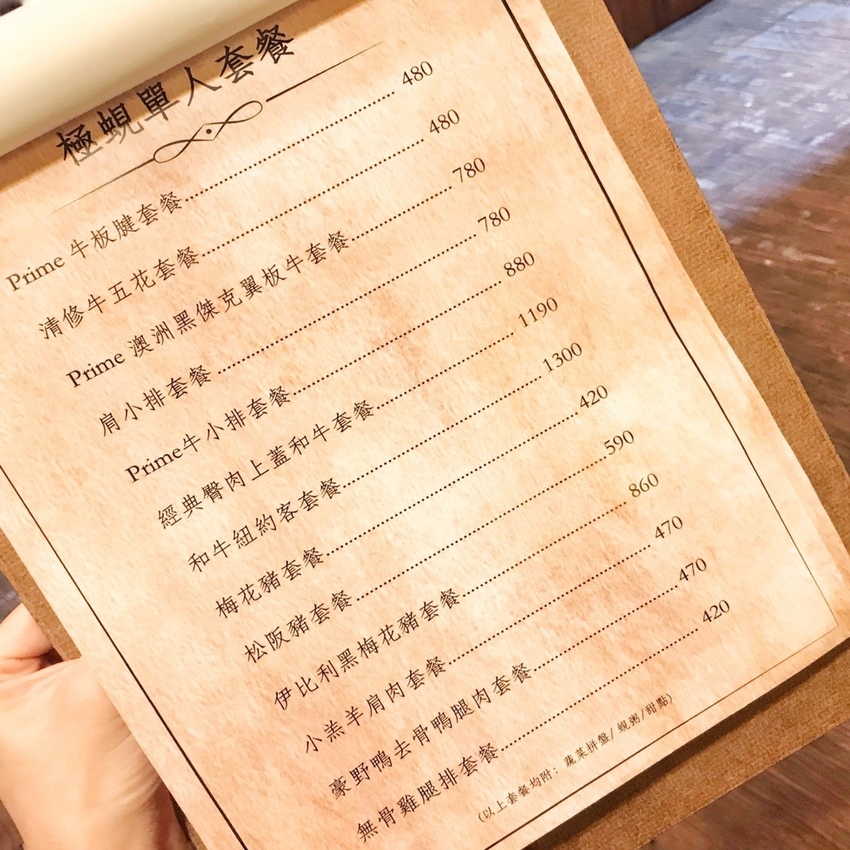 極蜆單人套餐
Prime 牛板腱套餐 480
清修牛五花套餐 480
Prime 澳洲黑傑克翼板牛套餐 780
肩小排套餐 780
Prime牛小排套餐 880
經典臀肉上蓋和牛套餐 1190
和牛紐約客套餐 1300
梅花豬套餐 420
松阪豬套餐 590
伊比利黑梅花豬套餐 860
小羔羊肩肉套餐 470
豪野鴨去骨鴨腿肉套餐 470
無骨雞腿排套餐 420
(以上套餐均附：蔬菜拼盤/蜆粥/甜點)